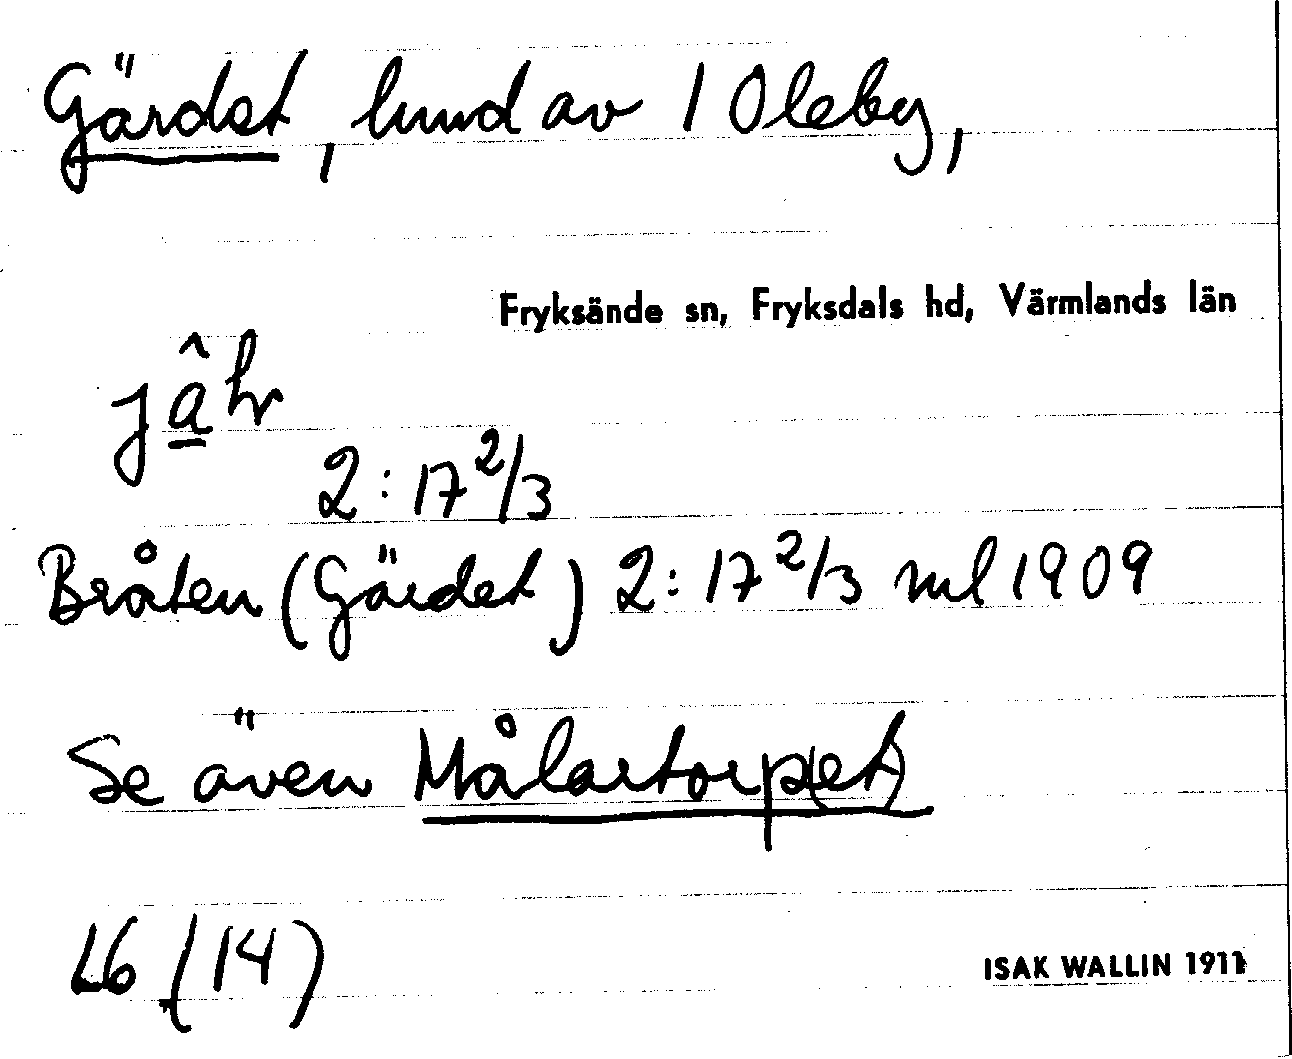 Gärdet, hmd av 1 Oleby,
Fryksände sn, Fryksdals hd, Värmlands län
jâhr
2:17 2/3
Bråten (Gärdet) 2:17 2/3 ml 1909
Se även Målartorp(et)
16 (14)
ISAK WALLIN 1911